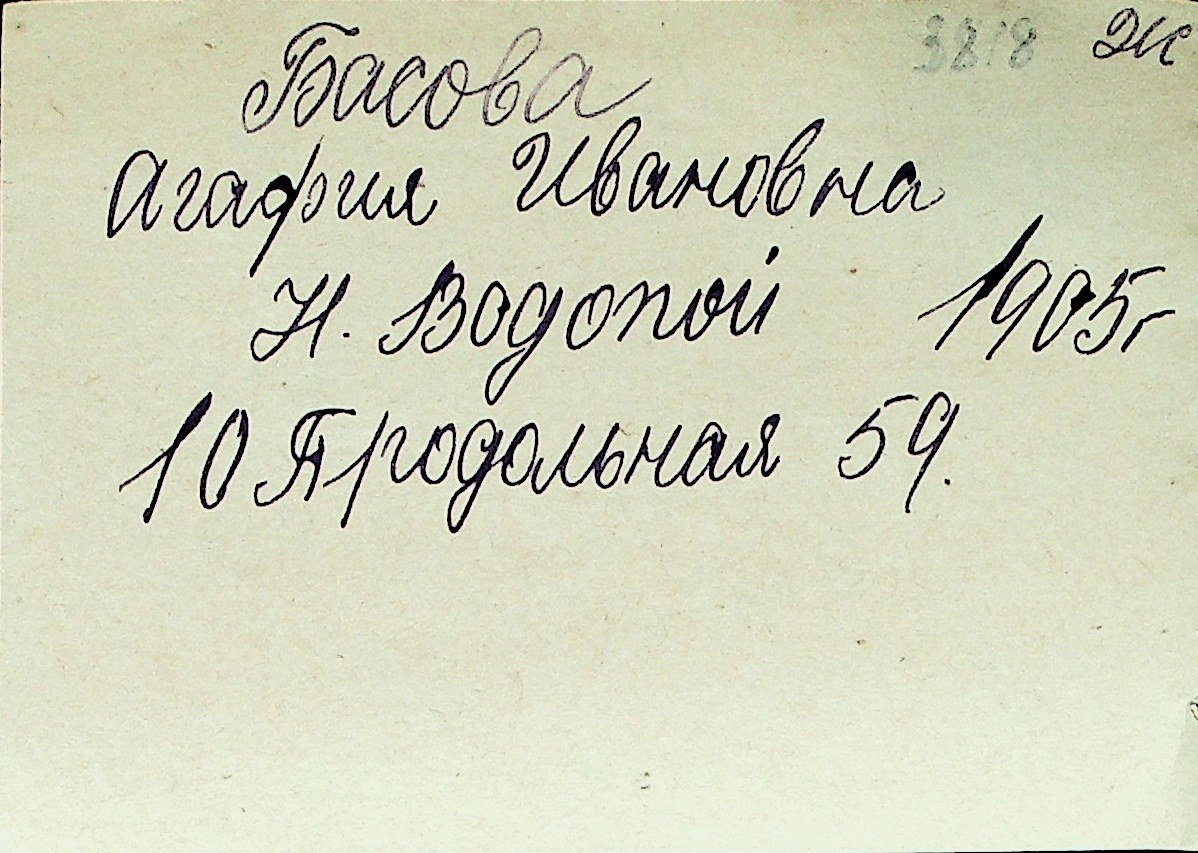 3818 Ж
Басова
Агафия Ивановна
Н. Водопой 1905г
10 Продольная 59.